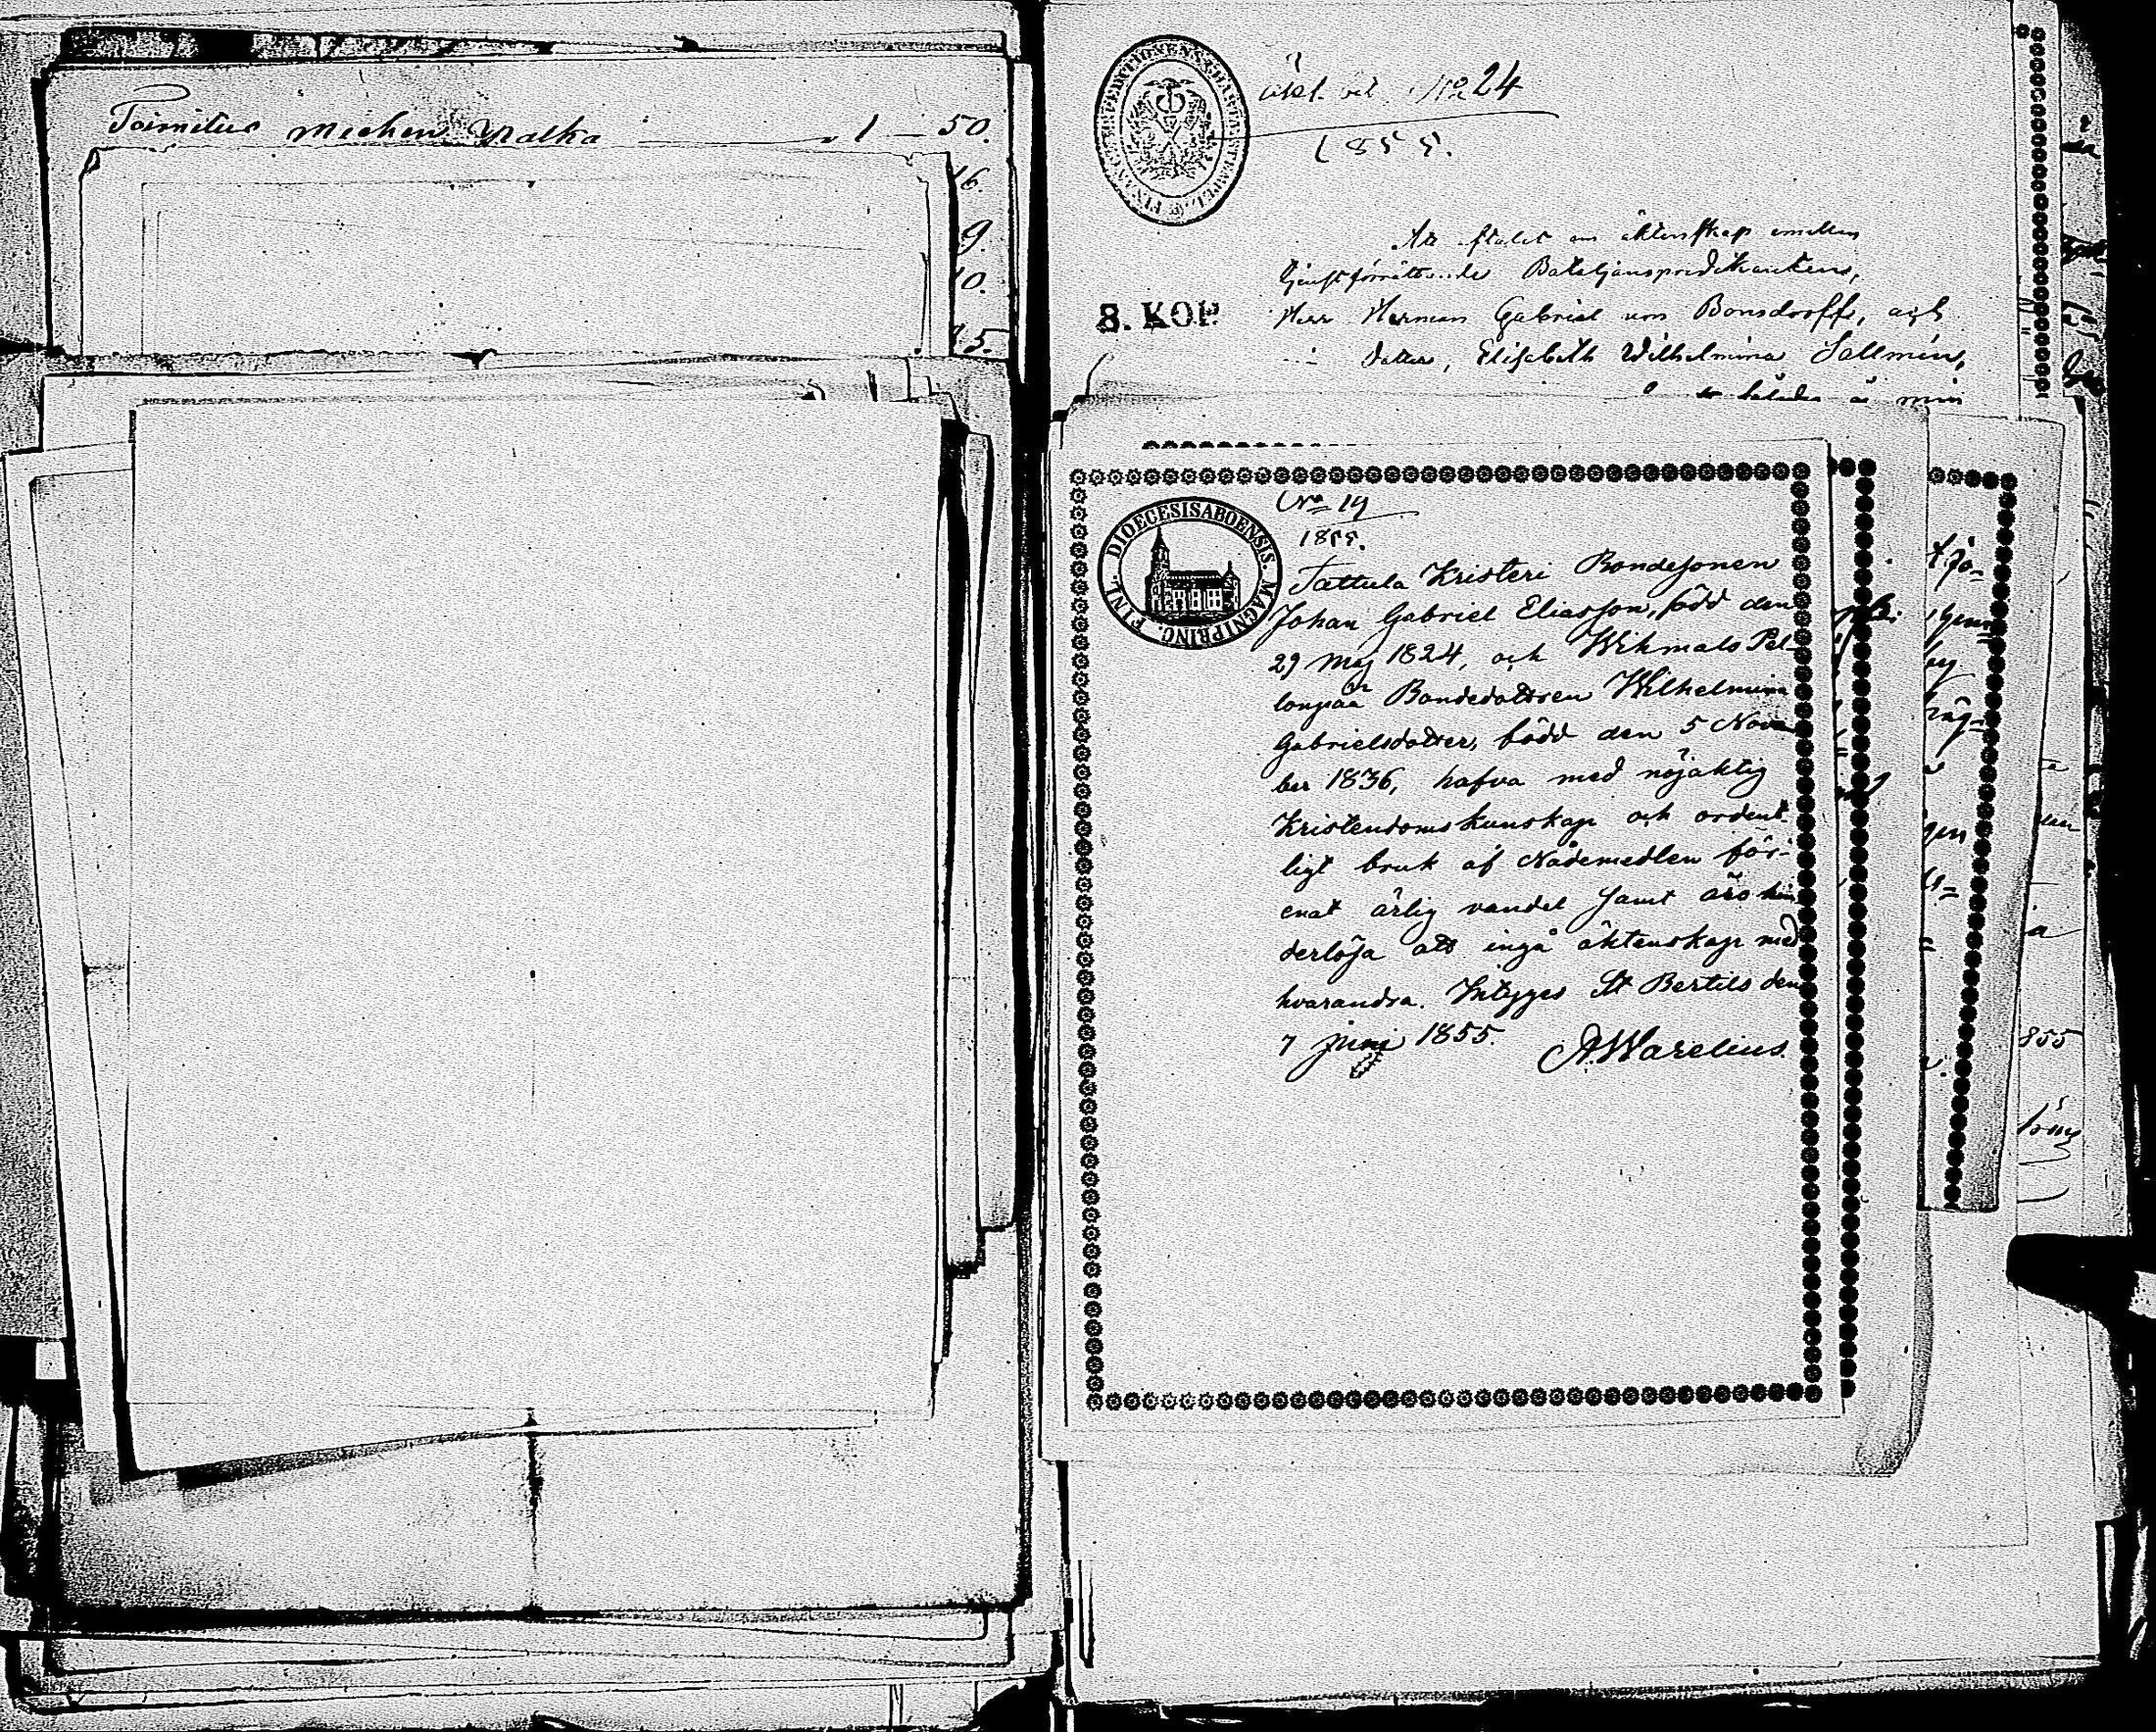 Toimitus miehen palka 1 50.
16.
9.
10.
15.
No 24
1855.
äktenskap emellan
Bataljonspredikanten,
Herr Herman Gabriel von Bonsdorff, och
dotter, Elisabeth Wilhelmina Sallmén,
min
8. KOP.
DIOECESIS ABOENSIS. MAGNI PRINC. FINL.
No 19
1855.
Tattula Kristeri Bondesonen
Johan Gabriel Eliasson, född den
29 Maj 1824, och Wihmalo Pel-
lonpää Bondedottren Wilhelmina
Gabrielsdotter, född den 5 Novem
ber 1836, hafva med nöjaktig
Kristendomskunskap och ordent-
ligt bruk af Nådemedlen för-
enat ärlig vandel samt äro hin
derlösa att ingå äktenskap med
hvarandra. Intygges St Bertils den
7 Juni 1855. A. Warelius.
855